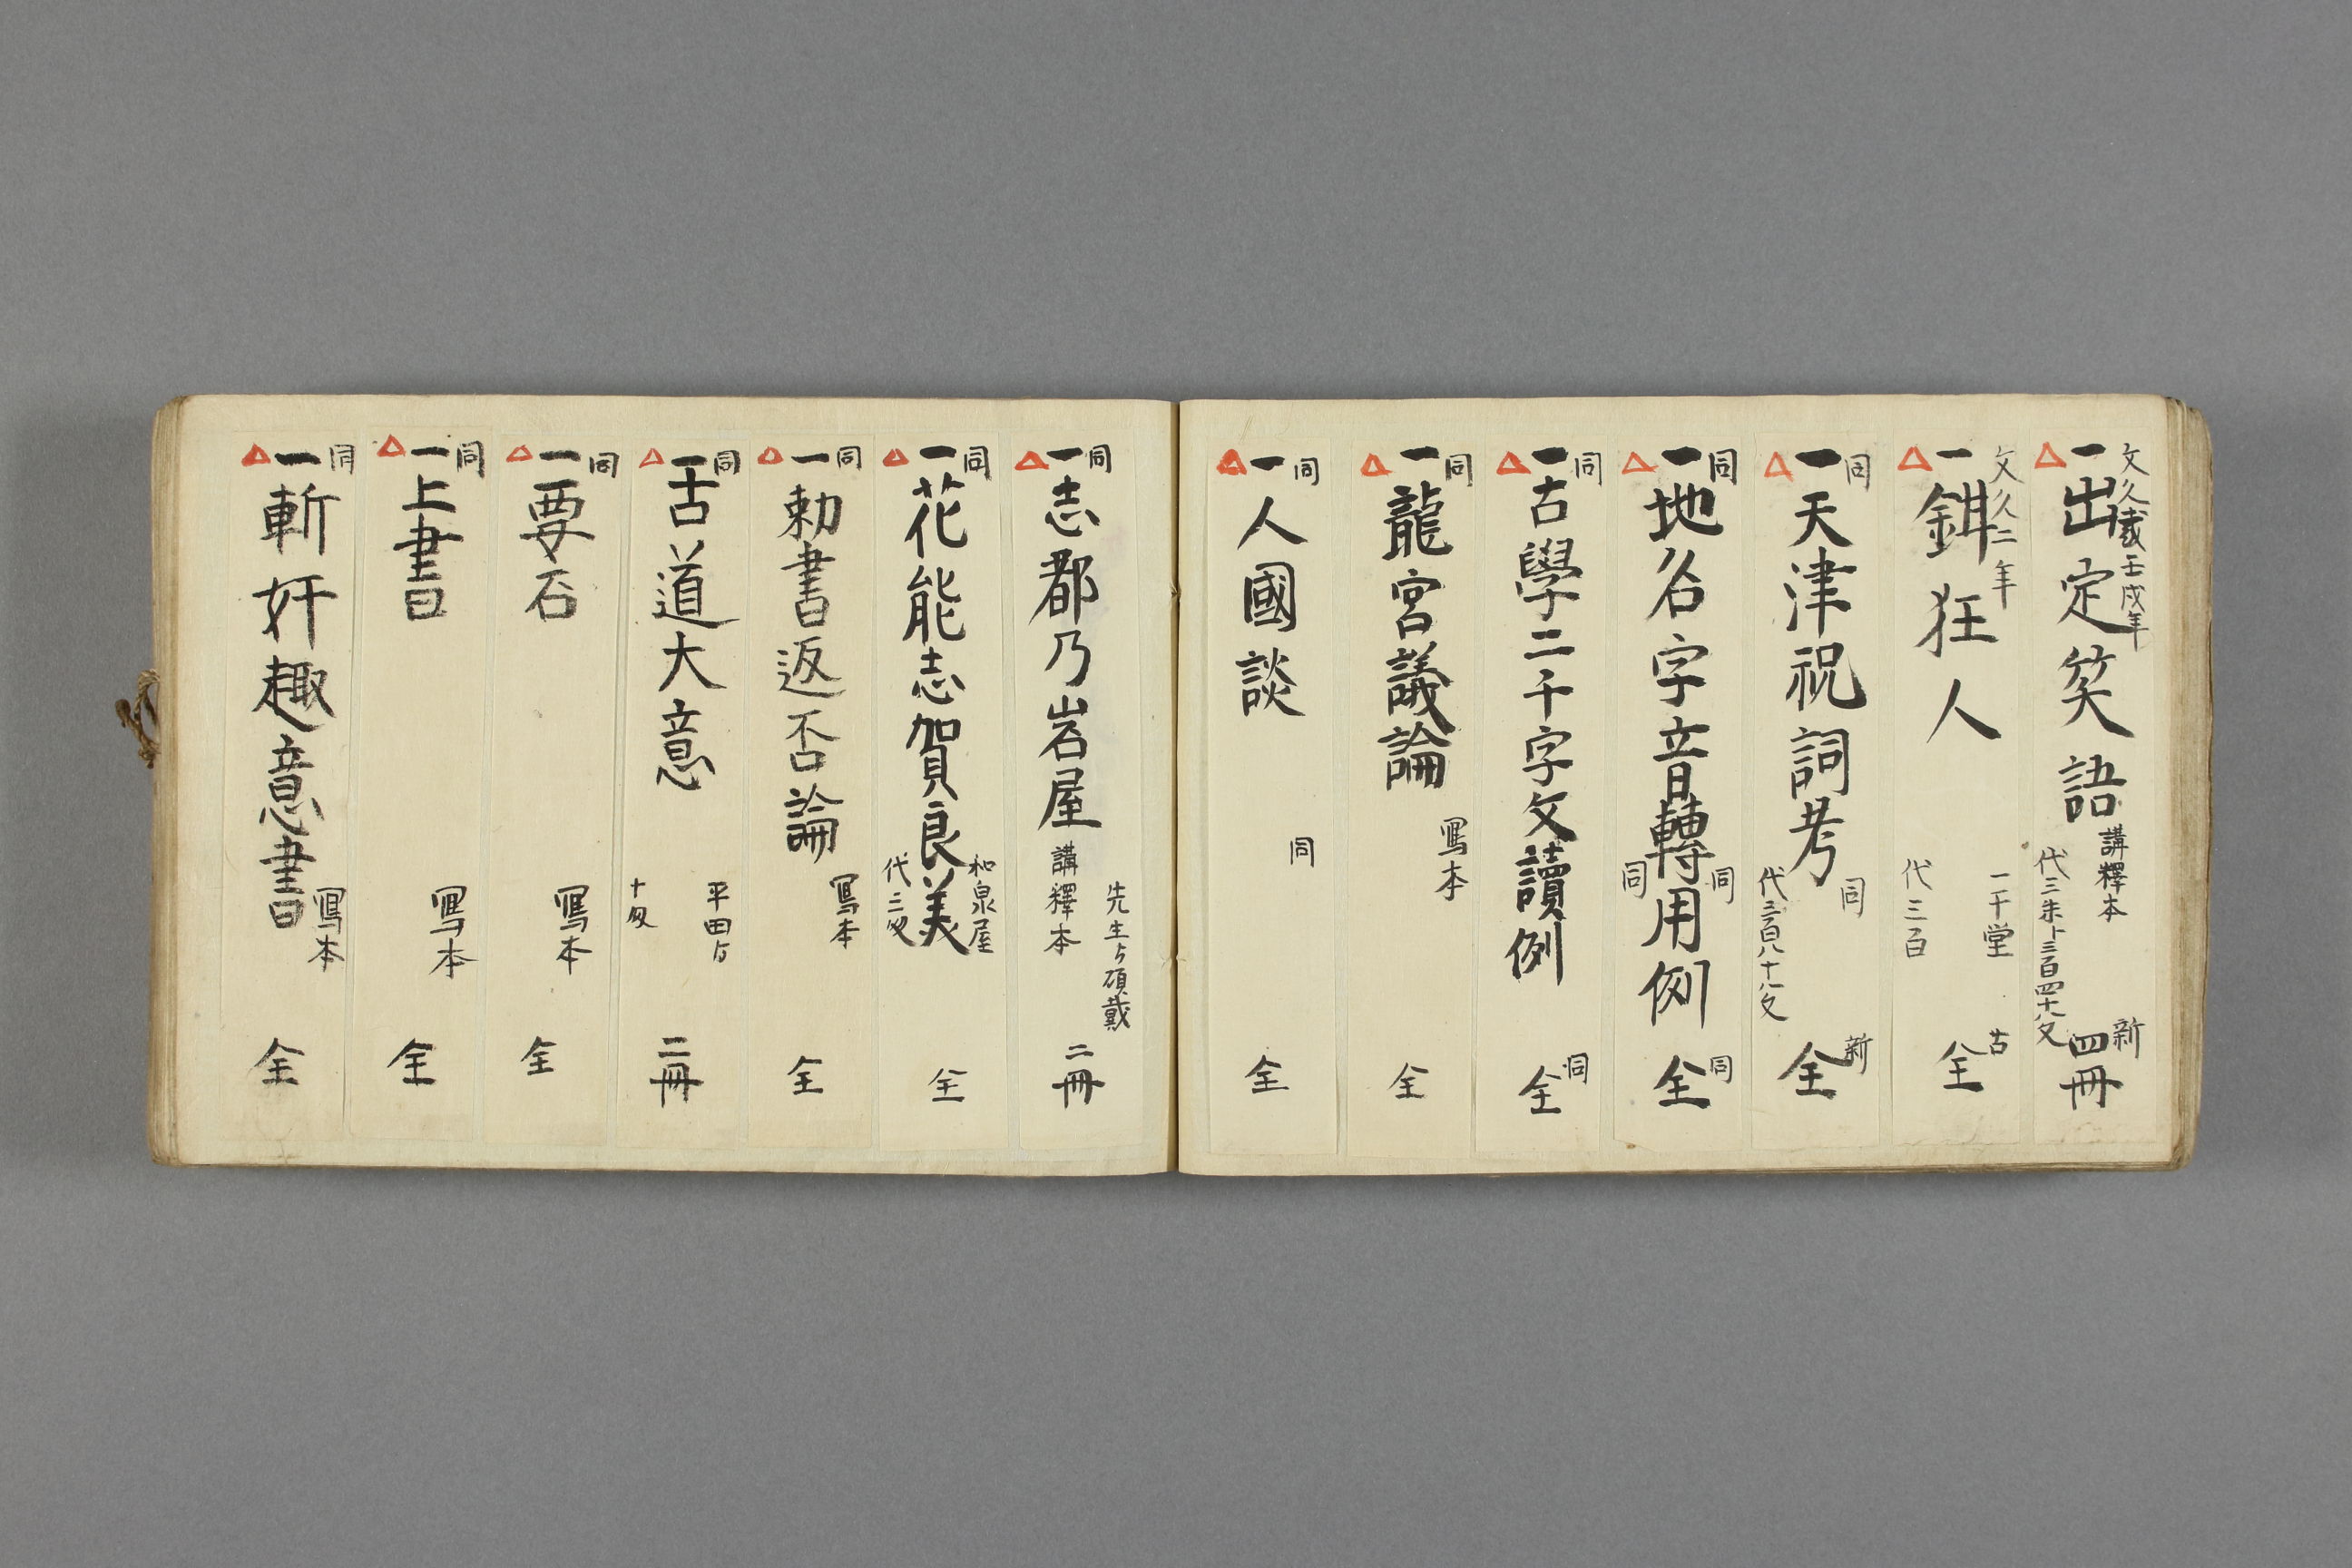 文久二歳壬戌年
一出定笑語 講釋本 新 四冊
代三朱ト三百四十八文
文久二年
一鉗狂人 一千堂 古 全
代三百
同
一天津祝詞考 同 新 全
代三百八十八文
同
一地名字音轉用例 同 同 全
同
同
一古學二千字文讀例 同 全
同
一龍宮議論 寫本 全
同
一人國談 同 全
同
一志都乃岩屋 講釋本 二冊
先生ゟ頂戴
同
一花能志賀良美 和泉屋 全
代二匁
同
一勅書返否論 寫本 全
同
一古道大意 平田ゟ 二冊
十匁
同
一要石 寫本 全
同
一上書 寫本 全
同
一斬奸趣意書 寫本 全